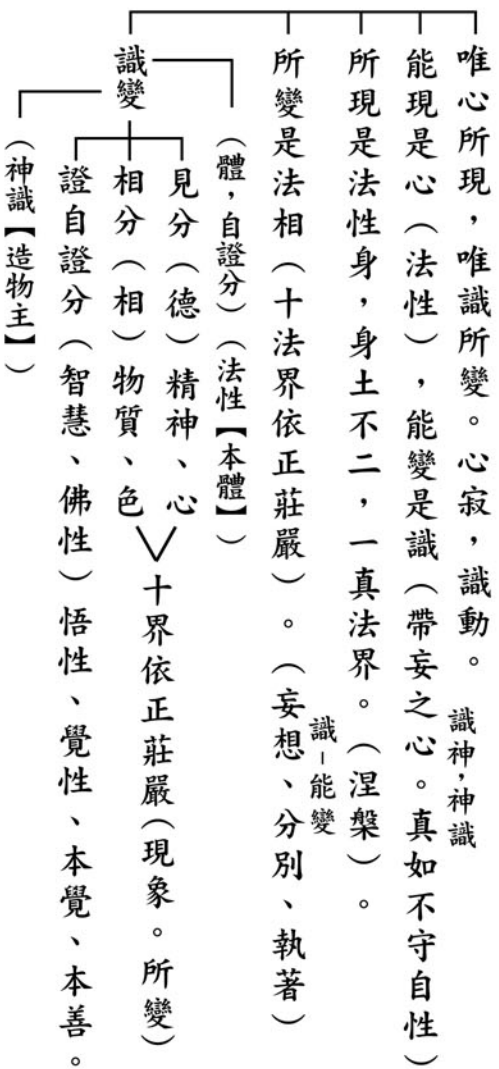 唯心所現，唯識所變。心寂，識動。
識神，神識
能現是心（法性），能變是識（帶妄之心。真如不守自性）
所現是法性身，身土不二，一真法界。（涅槃）。
識－能變
所變是法相（十法界依正莊嚴）。（妄想、分別、執著）
識變
（體，自證分）（法性【本體】）
見分（德）精神、心
相分（相）物質、色
十界依正莊嚴（現象。所變）
證自證分（智慧、佛性）悟性、覺性、本覺、本善。
（神識【造物主】）